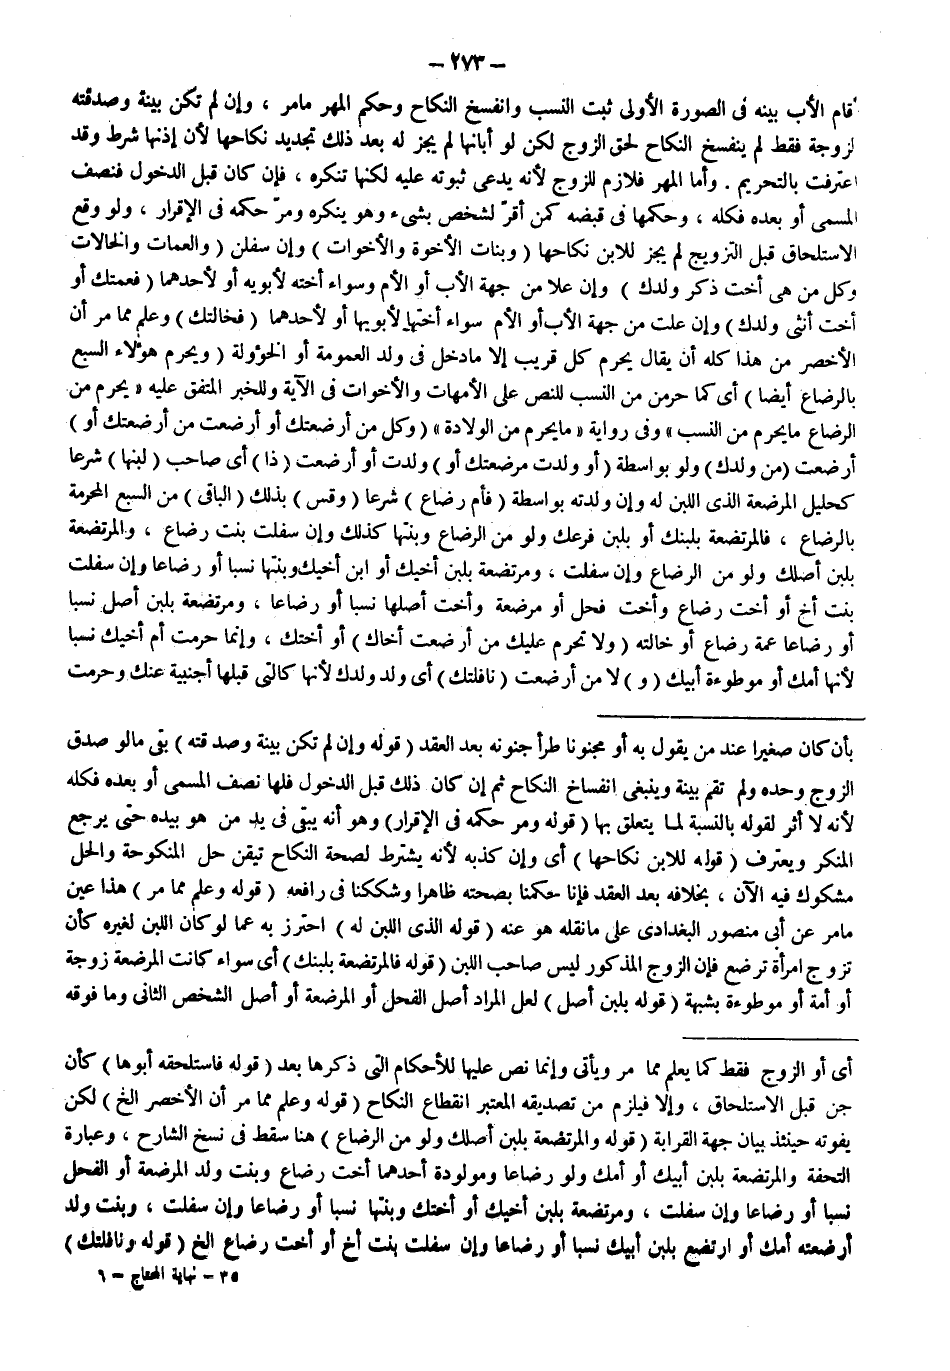 — ٢٧٣ —
قام الأب بينه فى الصورة الأولى ثبت النسب وانفسخ النكاح وحكم المهر مامر ، وإن لم تكن بينة وصدقته
لزوجة فقط لم ينفسخ النكاح لحق الزوج لكن لو أبانها لم يجز له بعد ذلك تجديد نكاحها لأن إذنها شرط وقد
اعترفت بالتحريم . وأما المهر فلازم للزوج لأنه يدعى ثبوته عليه لكنها تنكره ، فإن كان قبل الدخول فنصف
المسمى أو بعده فكله ، وحكمها فى قبضه كمن أقرّ لشخص بشىء وهو ينكره ومرّ حكمه فى الإقرار ، ولو وقع
الاستلحاق قبل التزويج لم يجز للابن نكاحها ( وبنات الأخوة والأخوات ) وإن سفلن ( والعمات والخالات
وكل من هى أخت ذكر ولدك ) وإن علا من جهة الأب أو الأم وسواء أخته لأبويه أو لأحدهما ( فعمتك أو
أخت أنثى ولدك ) وإن علت من جهة الأب أو الأم سواء أختها لأبويها أو لأحدهما ( فخالتك ) وعلم مما مر أن
الأخصر من هذا كله أن يقال يحرم كل قريب إلا مادخل فى ولد العمومة أو الخؤولة ( ويحرم هؤلاء السبع
بالرضاع أيضا ) أى كما حرمن من النسب للنص على الأمهات والأخوات فى الآية وللخبر المتفق عليه « يحرم من
الرضاع مايحرم من النسب » وفى رواية « مايحرم من الولادة » ( وكل من أرضعتك أو أرضعت من أرضعتك أو )
أرضعت ( من ولدك ) ولو بواسطة ( أو ولدت مرضعتك أو ) ولدت أو أرضعت ( ذا ) أى صاحب ( لبنها ) شرعا
كحليل المرضعة الذى اللبن له وإن ولدته بواسطة ( فأم رضاع ) شرعا ( وقس ) بذلك ( الباقى ) من السبع المحرمة
بالرضاع ، فالمرتضعة بلبنك أو بلبن فرعك ولو من الرضاع وبنتها كذلك وإن سفلت بنت رضاع ، والمرتضعة
بلبن أصلك ولو من الرضاع وإن سفلت ، ومرتضعة بلبن أخيك أو ابن أخيك وبنتها نسبا أو رضاعا وإن سفلت
بنت أخ أو أخت رضاع وأخت فحل أو مرضعة وأخت أصلها نسبا أو رضاعا ، ومرتضعة بلبن أصل نسبا
أو رضاعا عمة رضاع أو خالته ( ولا تحرم عليك من أرضعت أخاك ) أو أختك ، وإنما حرمت أم أخيك نسبا
لأنها أمك أو موطوءة أبيك ( و ) لا من أرضعت ( نافلتك ) أى ولد ولدك لأنها كالتى قبلها أجنبية عنك وحرمت
بأن كان صغيرا عند من يقول به أو مجنونا طرأ جنونه بعد العقد ( قوله وإن لم تكن بينة وصدقته ) بقى مالو صدق
الزوج وحده ولم تقم بينة وينبغى انفساخ النكاح ثم إن كان ذلك قبل الدخول فلها نصف المسمى أو بعده فكله
لأنه لا أثر لقوله بالنسبة لما يتعلق بها ( قوله ومر حكمه فى الإقرار ) وهو أنه يبقى فى يد من هو بيده حتى يرجع
المنكر ويعترف ( قوله للابن نكاحها ) أى وإن كذبه لأنه يشترط لصحة النكاح تيقن حل المنكوحة والحل
مشكوك فيه الآن ، بخلافه بعد العقد فإنا حكمنا بصحته ظاهرا وشككنا فى رافعه ( قوله وعلم مما مر ) هذا عين
مامر عن أبى منصور البغدادى على مانقله هو عنه ( قوله الذى اللبن له ) احترز به عما لو كان اللبن لغيره كأن
تزوج امرأة ترضع فإن الزوج المذكور ليس صاحب اللبن ( قوله فالمرتضعة بلبنك ) أى سواء كانت المرضعة زوجة
أو أمة أو موطوءة بشبهة ( قوله بلبن أصل ) لعل المراد أصل الفحل أو المرضعة أو أصل الشخص الثانى وما فوقه
أى أو الزوج فقط كما يعلم مما مر ويأتى وإنما نص عليها للأحكام التى ذكرها بعد ( قوله فاستلحقه أبوها ) كأن
جن قبل الاستلحاق ، وإلا فيلزم من تصديقه المعتبر انقطاع النكاح ( قوله وعلم مما مر أن الأخصر الخ ) لكن
يفوته حينئذ بيان جهة القرابة ( قوله والمرتضعة بلبن أصلك ولو من الرضاع ) هنا سقط فى نسخ الشارح ، وعبارة
التحفة والمرتضعة بلبن أبيك أو أمك ولو رضاعا ومولودة أحدهما أخت رضاع وبنت ولد المرضعة أو الفحل
نسبا أو رضاعا وإن سفلت ، ومرتضعة بلبن أخيك أو أختك وبنتها نسبا أو رضاعا وإن سفلت ، وبنت ولد
أرضعته أمك أو ارتضع بلبن أبيك نسبا أو رضاعا وإن سفلت بنت أخ أو أخت رضاع الخ ( قوله ونافلتك )
٣٥ – نهاية المحتاج – ٦